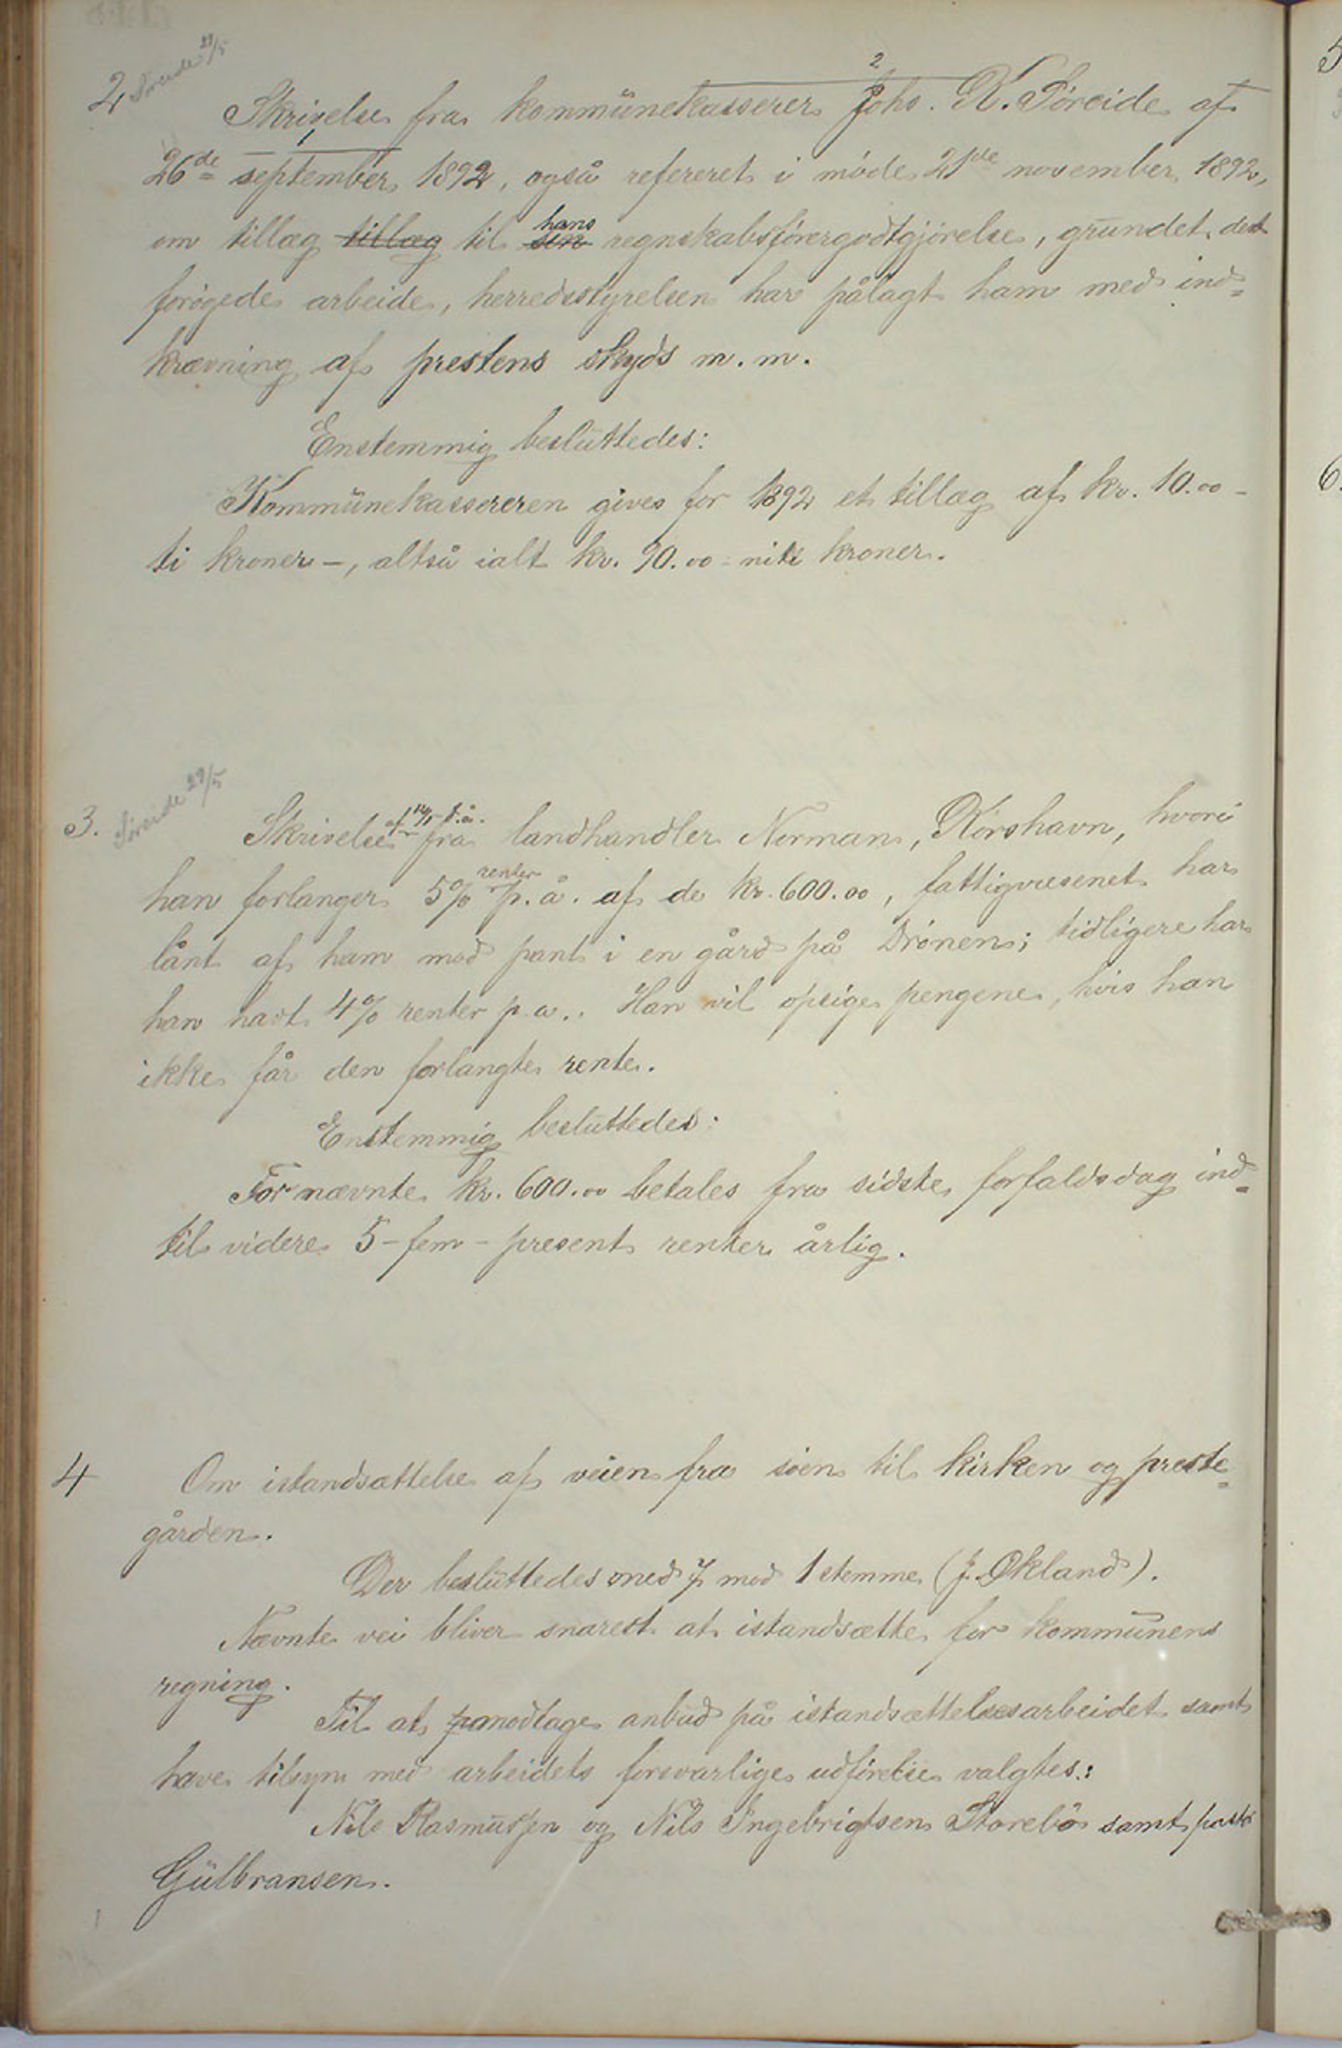 2 Søreide 29/5
Skrivelse fra kommunekasserer Johs. K. Søreide af
26de september 1892, også refereret i møde 21de november 1892,
om tillæg tillæg til sin hans regnskabsførergodtgjørelse, grundet det
forøgede arbeide, herredsstyrelsen har pålagt ham med ind=
krævning af prestens skyds m. m.
Enstemmig besluttedes:
Kommunekassereren gives for 1892 et tillæg af kr. 10.00 -
ti kroner -, altså ialt kr. 90.00 - nitti kroner.
3. Søreide 29/5
Skrivelse af fra landhandler Norman, Korshavn, hvori
han forlanger 5% renter p. å. af de kr. 600.00, fattigvæsenet har
lånt af ham mod pant i en gård på Drønen; tidligere har
han havt 4% renter p. a.. Han vil opsige pengene, hvis han
ikke får den forlangte rente.
Enstemmig besluttedes:
For nævnte kr. 600.00 betales fra sidste forfaldsdag ind=
til videre 5 - fem - prosent renter årlig.
4 Om istandsættelse af veien fra søen til kirken og preste=
gården.
Der besluttedes med 7 mod 1 stemme (J. Økland).
Nævnte vei bliver snarest at istandsætte for kommunens
regning.
Til at modtage anbud på istandsættelsesarbeidet samt
have tilsyn med arbeidets forsvarlige udførelse valgtes:
Nils Rasmussen og Nils Ingebrigtsen Storebø samt
Gulbransen.
5
6.